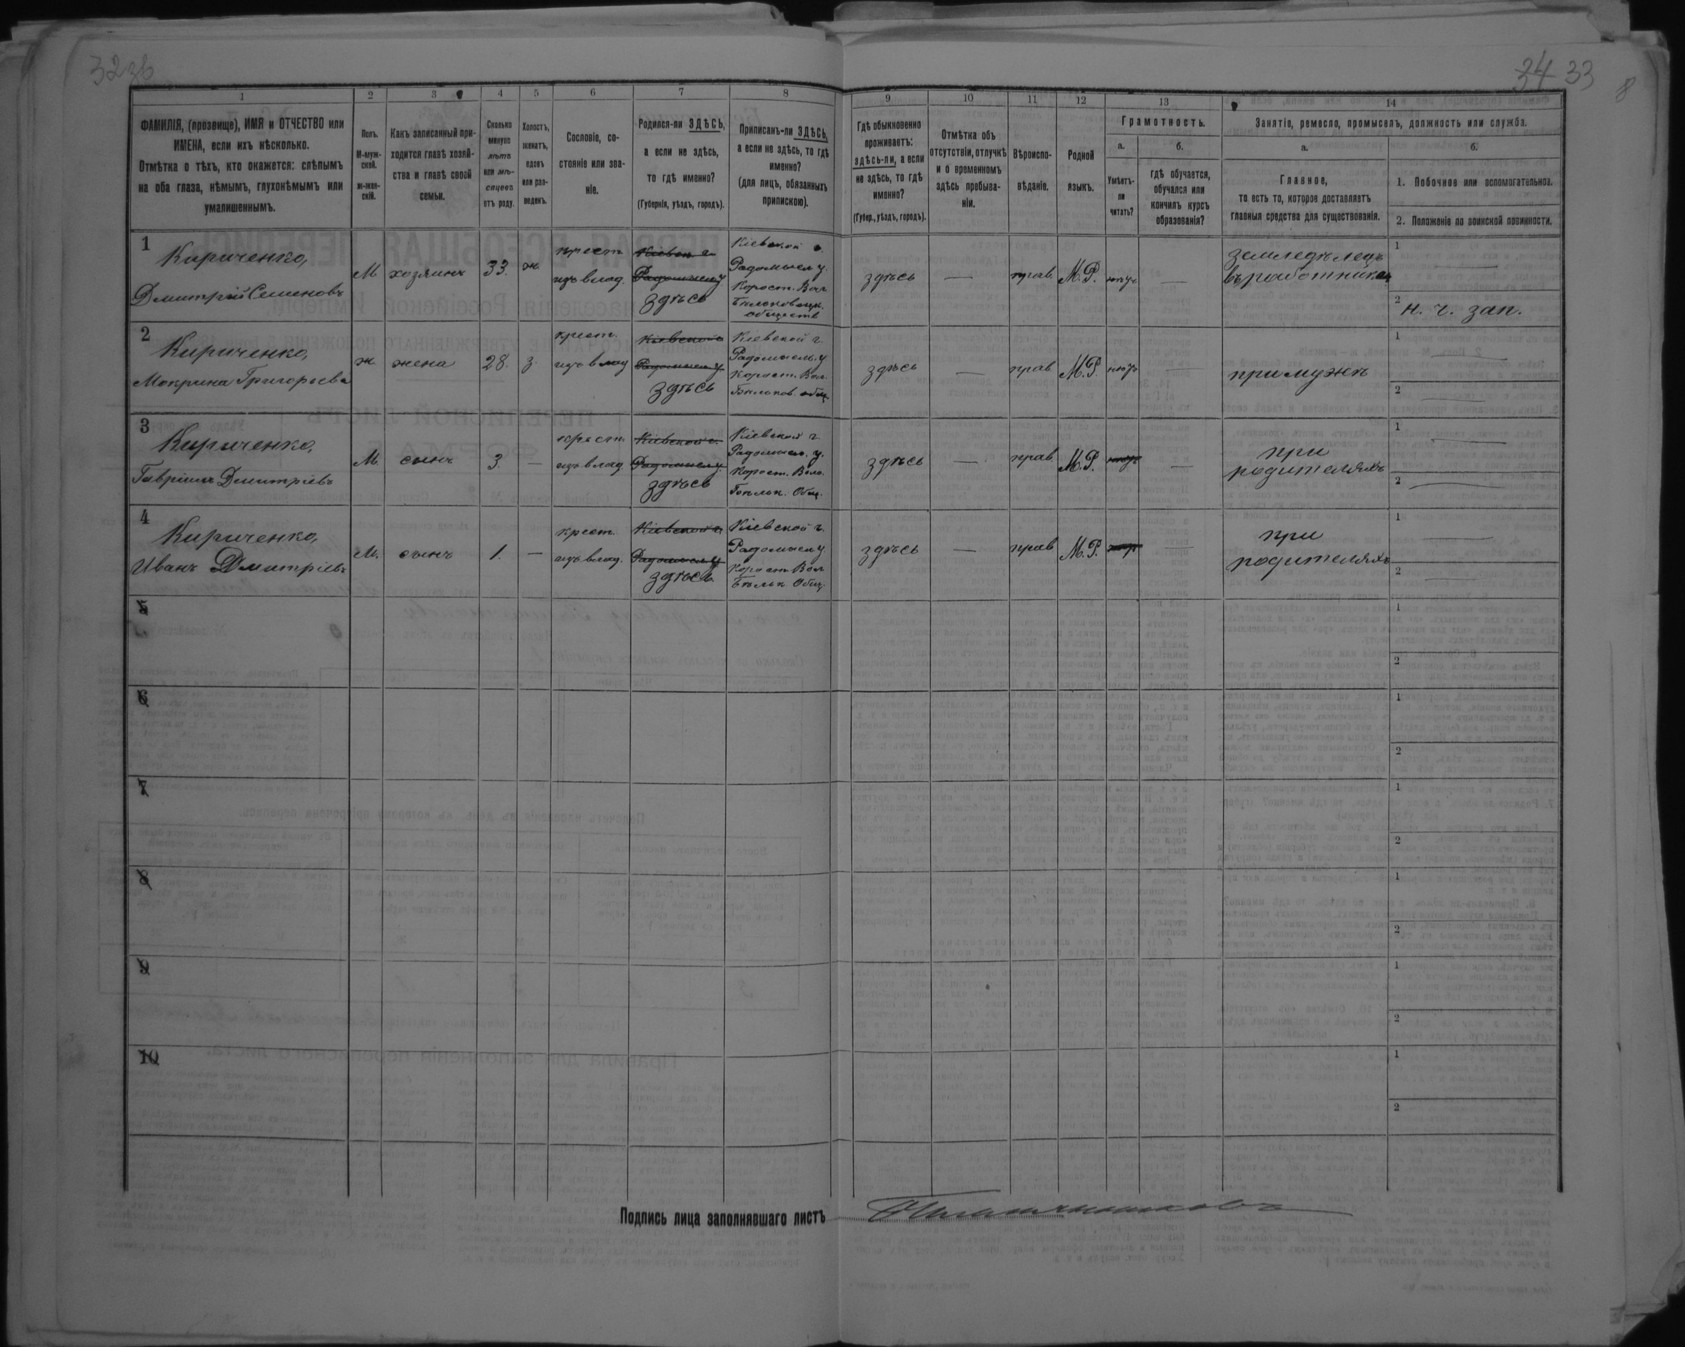 32 об
34 33
8
1 2 3 4 5 6 7 8 9 10 11 12 13 14
ФАМИЛІЯ, (прозвище), ИМЯ и ОТЧЕСТВО или
ИМЕНА, если ихъ нѣсколько.
Отмѣтка о тѣхъ, кто окажется: слѣпымъ
на оба глаза, нѣмымъ, глухонѣмымъ или
умалишеннымъ.
Полъ.
М-муж-
ской.
ж-жен-
скій.
Какъ записанный при-
ходится главѣ хозяй-
ства и главѣ своей
семьи.
Сколько
минуло
лѣтъ
или мѣ-
сяцевъ
отъ роду.
Холостъ,
женатъ,
вдовъ
или раз-
веденъ.
Сословіе, со-
стояніе или зва-
ніе.
Родился-ли ЗДѢСЬ,
а если не здѣсь,
то гдѣ именно?
(Губернія, уѣздъ, городъ).
Приписанъ-ли ЗДѢСЬ,
а если не здѣсь, то гдѣ
именно?
(для лицъ, обязанныхъ
припискою).
Гдѣ обыкновенно
проживаетъ:
здѣсь-ли, а если
не здѣсь, то гдѣ
именно?
(Губер., уѣздъ, городъ).
Отмѣтка объ
отсутствіи, отлучкѣ
и о временномъ
здѣсь пребыва-
ніи.
Вѣроиспо-
вѣданіе.
Родной
языкъ.
Грамотность.
а.
Умѣетъ-
ли
читать?
б.
гдѣ обучается,
обучался или
кончилъ курсъ
образованія?
Занятіе, ремесло, промыселъ, должность или служба.
а.
Главное,
то есть то, которое доставляетъ
главныя средства для существованія.
б.
1. Побочное или вспомогательное.
2. Положеніе по воинской повинности.
1
Кириченко,
Дмитрій Семеновъ
М
хозяинъ
33.
ж
крест.
изъ влад.
Кіевск. г.
Радомысл. у
здѣсь
Кіевской г.
Радомысл. у.
Корост. Вол.
обществ
здѣсь
—
прав
М.Р.
нѣтъ
—
земледѣлецъ
1
2 н. ч. зап.
2
Кириченко,
Мокрина Григорьева
ж
жена
28.
з
крест.
изъ влад
Кіевской г.
Радомысл. у
здѣсь
Кіевской г.
Радомысл. у
Корост. Вол.
общ.
здѣсь
—
прав
М.Р.
нѣтъ
—
при мужѣ
1
2
3
Кириченко,
Гавріилъ Дмитріевъ
М
сынъ
3.
—
крест.
изъ влад
Кіевской г.
Радомысл. у
здѣсь
Кіевской г
Радомысл. у.
Корост. Воло.
Общ.
здѣсь
—
прав
М.Р.
нѣтъ
—
при
родителяхъ
1
2
4
Кириченко,
Иванъ Дмитріевъ
М.
сынъ
1.
—
крест.
изъ влад.
Кіевской г.
Радомысл. у
здѣсь.
Кіевской г.
Радомысл. у
Корост. Вол
Общ.
здѣсь
—
прав
М.Р.
—
при
родителяхъ
1
2
5
1
2
6
1
2
7
1
2
8
1
2
9
1
2
10
1
2
Подпись лица заполнявшаго листъ